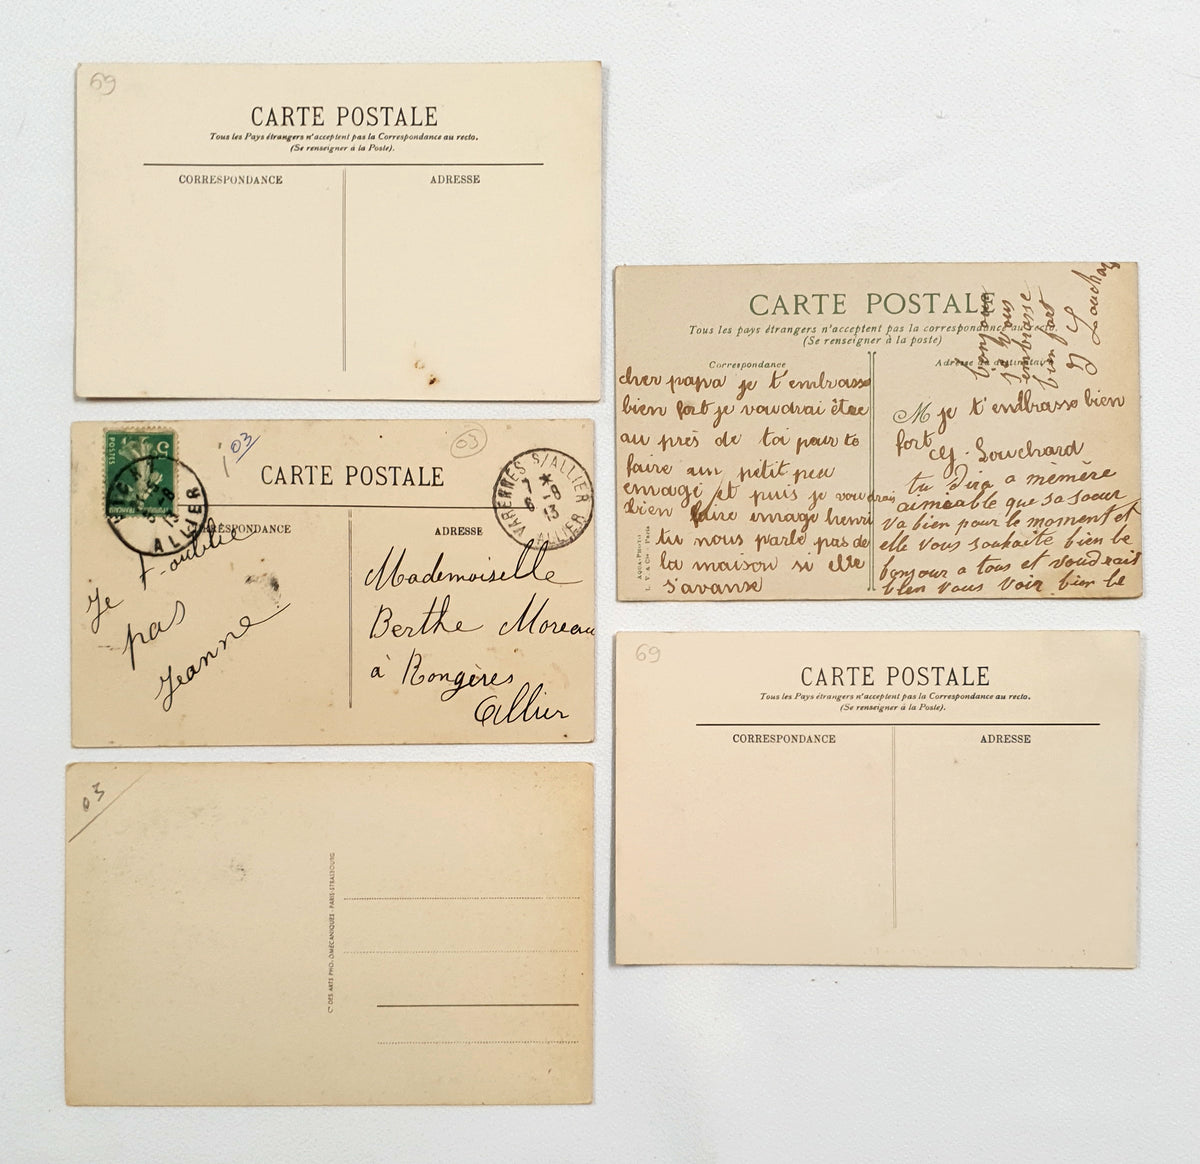 69
CARTE POSTALE
Tous les Pays étrangers n'acceptent pas la Correspondance au recto.
(Se renseigner à la Poste).
CORRESPONDANCE
ADRESSE
03
03
5
POSTES
ALLIER
8
13
CARTE POSTALE
VARENNES S/ALLIER
ALLIER
8
13
RRESPONDANCE
ADRESSE
Je t'oublie
pas
Jeanne
Mademoiselle
Berthe Moreau
à Rongères
Allier
03
Cie DES ARTS PHOTOMÉCANIQUES - PARIS-STRASBOURG
CARTE POSTALE
Tous les pays étrangers n'acceptent pas la correspondance au recto.
(Se renseigner à la poste)
Correspondance
Adresse du destinataire
cher papa je t'embrasse
bien fort je voudrai être
au près de toi pour te
faire un petit peu
enragé et puis je voudrais
bien faire enragé henri
tu nous parle pas de
la maison si elle
s'avanse
AQUA-PHOTO
L. V. & Cie - Paris
M je t'embrasse bien
fort
G. Louchard
tu dira a mèmère
aimèable que sa soeur
va bien pour le moment et
elle vous souhaite bien le
bonjour a tous et voudrais
bien vous voir bien le
bonjour
je vous
embrasse
bien fort
69
CARTE POSTALE
Tous les Pays étrangers n'acceptent pas la Correspondance au recto.
(Se renseigner à la Poste).
CORRESPONDANCE
ADRESSE